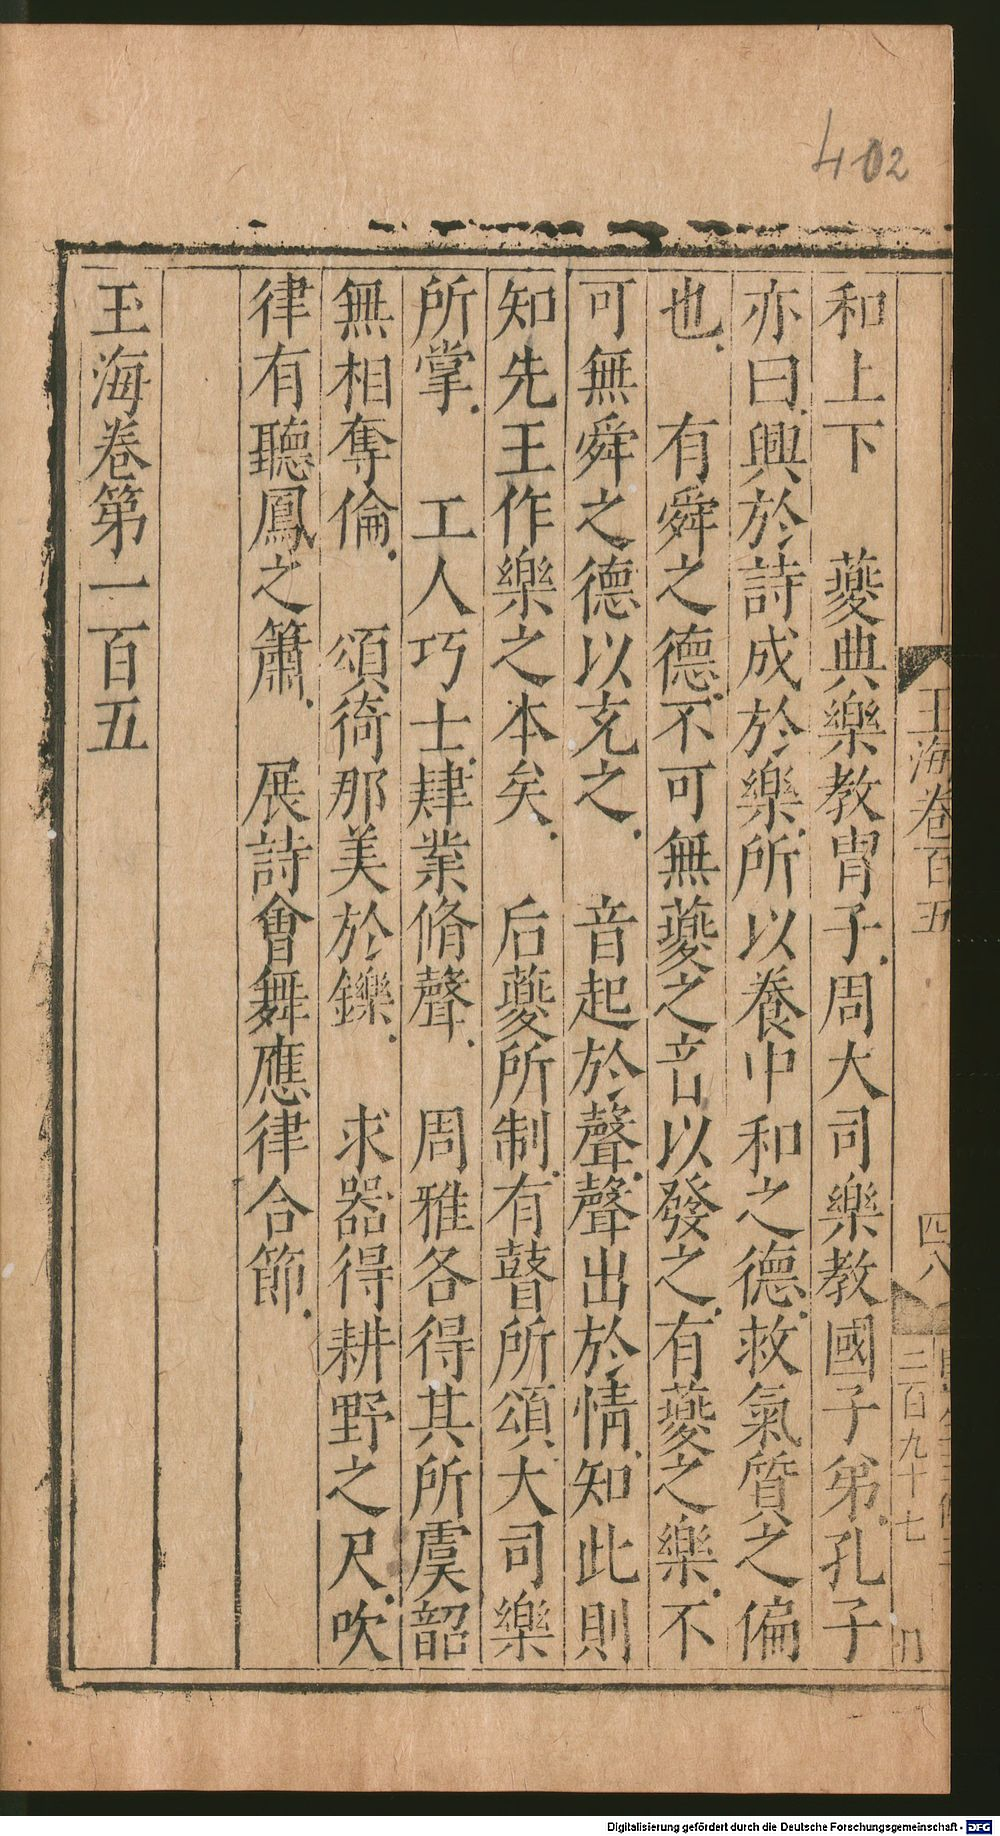 402
玉海卷百五
四八
二百九十七
和上下　夔典樂教胄子周大司樂教國子弟孔子
亦曰興於詩成於樂所以養中和之德救氣質之偏
也　有舜之德不可無夔之音以發之有夔之樂不
可無舜之德以充之　音起於聲聲出於情知此則
知先王作樂之本矣　后夔所制有瞽所頌大司樂
所掌　工人巧士肆業脩聲　周雅各得其所虞韶
無相奪倫　頌猗那美於鑠　求器得耕野之尺吹
律有聽鳳之簫　展詩會舞應律合節
玉海卷第一百五
Digitalisierung gefördert durch die Deutsche Forschungsgemeinschaft - DFG